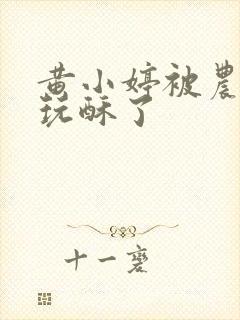 黄小婷被農
玩酥了
十一襃